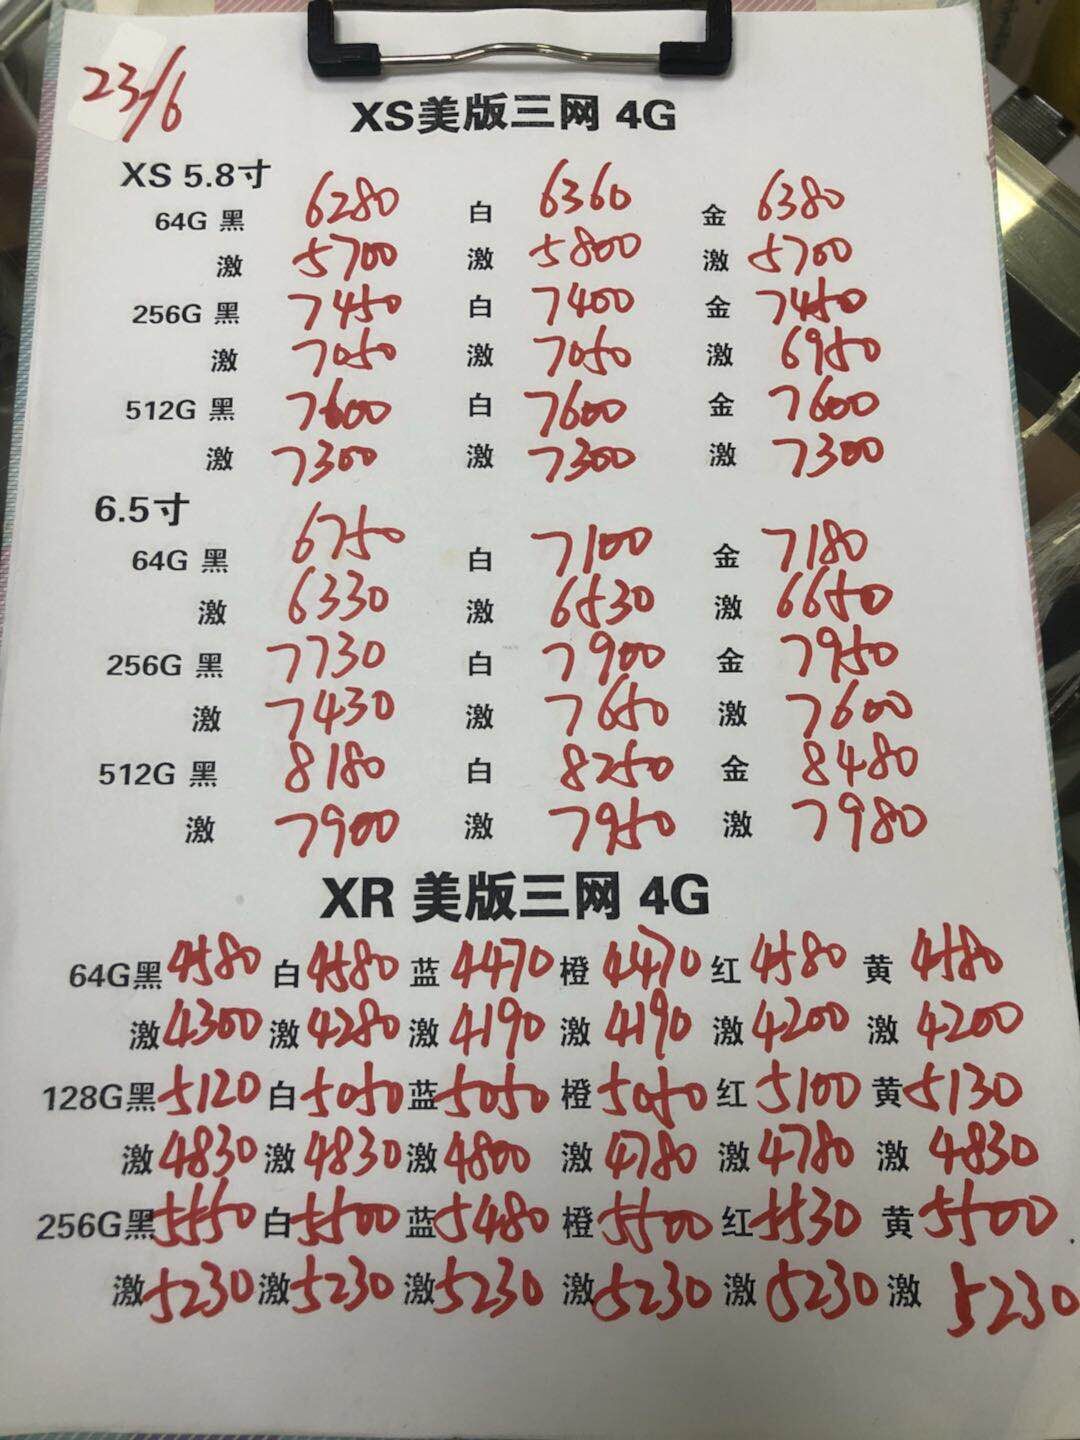 23/6
XS美版三网 4G
XS 5.8寸
64G 黑 6280 白 6360 金 6380
激 5700 激 5800 激 5700
256G 黑 7450 白 7400 金 7450
激 7050 激 7050 激 6950
512G 黑 7600 白 7600 金 7600
激 7300 激 7300 激 7300
6.5寸
64G 黑 6750 白 7100 金 7180
激 6330 激 6530 激 6650
256G 黑 7730 白 7900 金 7950
激 7430 激 7650 激 7600
512G 黑 8180 白 8250 金 8480
激 7900 激 7950 激 7980
XR 美版三网 4G
64G黑 4580 白 4580 蓝 4470 橙 4470 红 4580 黄 4580
激 4300 激 4280 激 4190 激 4190 激 4200 激 4200
128G黑 5120 白 5050 蓝 5050 橙 5050 红 5100 黄 5130
激 4830 激 4830 激 4800 激 4780 激 4780 激 4830
256G黑 5550 白 5500 蓝 5480 橙 5500 红 5530 黄 5500
激 5230 激 5230 激 5230 激 5230 激 5230 激 5230